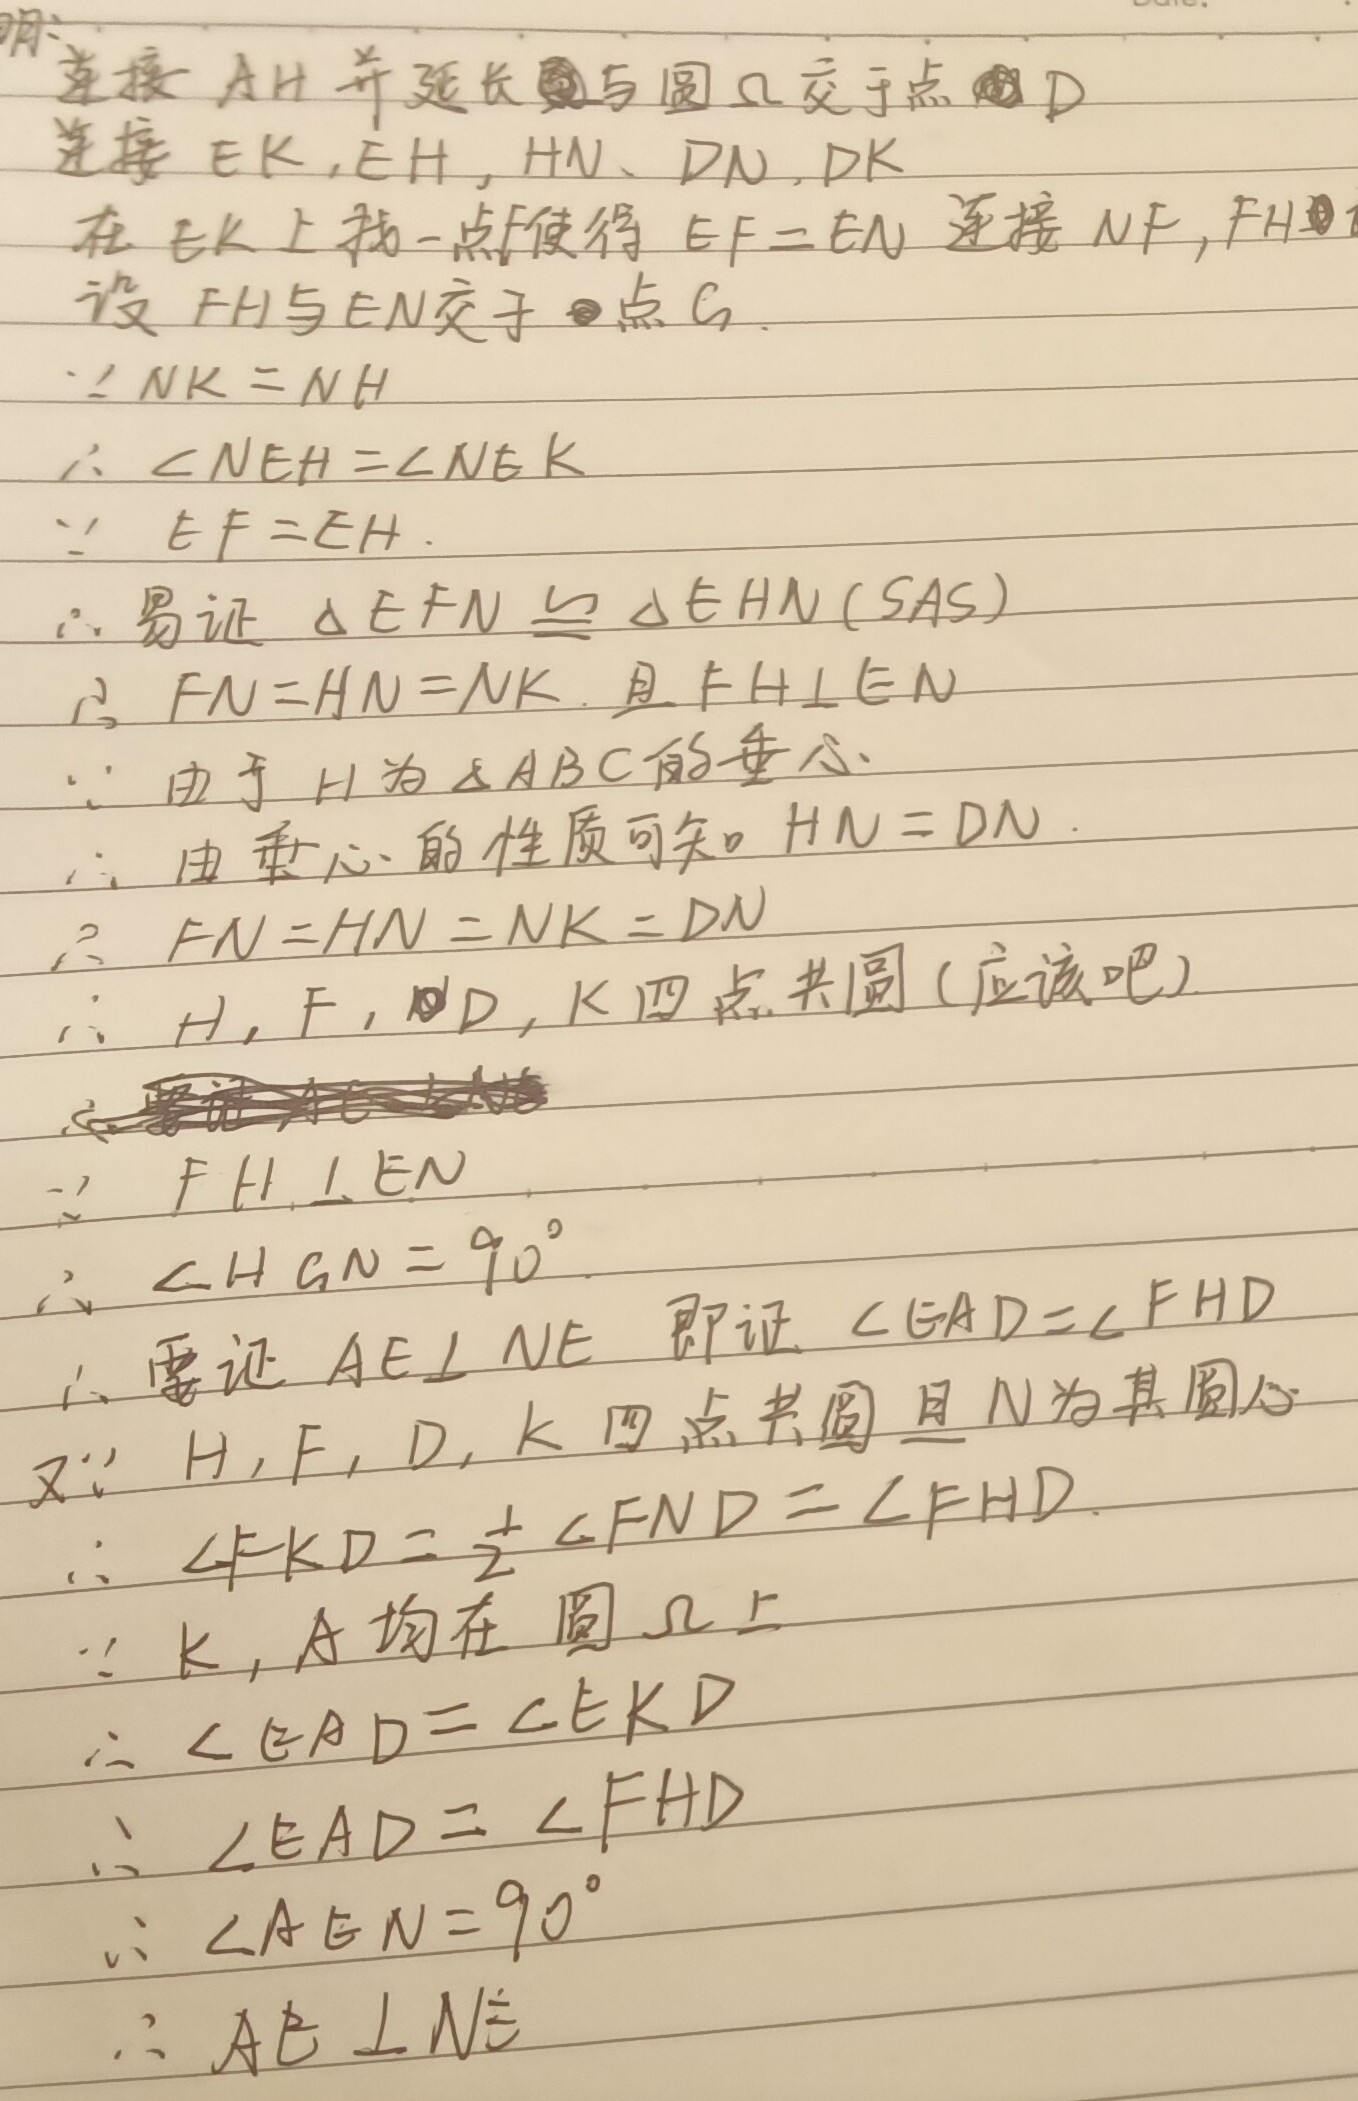 Date:
明:
连接 AH 并延长与圆Ω交于点 D
连接 EK,EH,HN、DN、DK
在EK上找一点F使得 EF=EN 连接 NF,FH
设 FH与EN交于点G.
∵ NK=NH
∴ ∠NEH=∠NEK
∵ EF=EH.
∴ 易证 △EFN≌△EHN(SAS)
∴ FN=HN=NK.且FH⊥EN
∵ 由于H为△ABC的垂心.
∴ 由垂心的性质可知 HN=DN.
∴ FN=HN=NK=DN
∴ H,F,D,K四点共圆(应该吧)
∵ FH⊥EN
∴ ∠HGN=90°
∴ 要证 AE⊥NE 即证 ∠EAD=∠FHD
又∵ H,F,D,K四点共圆且N为其圆心
∴ ∠FKD=1/2∠FND=∠FHD.
∵ K,A均在圆Ω上
∴ ∠EAD=∠EKD
∴ ∠EAD=∠FHD
∴ ∠AEN=90°
∴ AE⊥NE